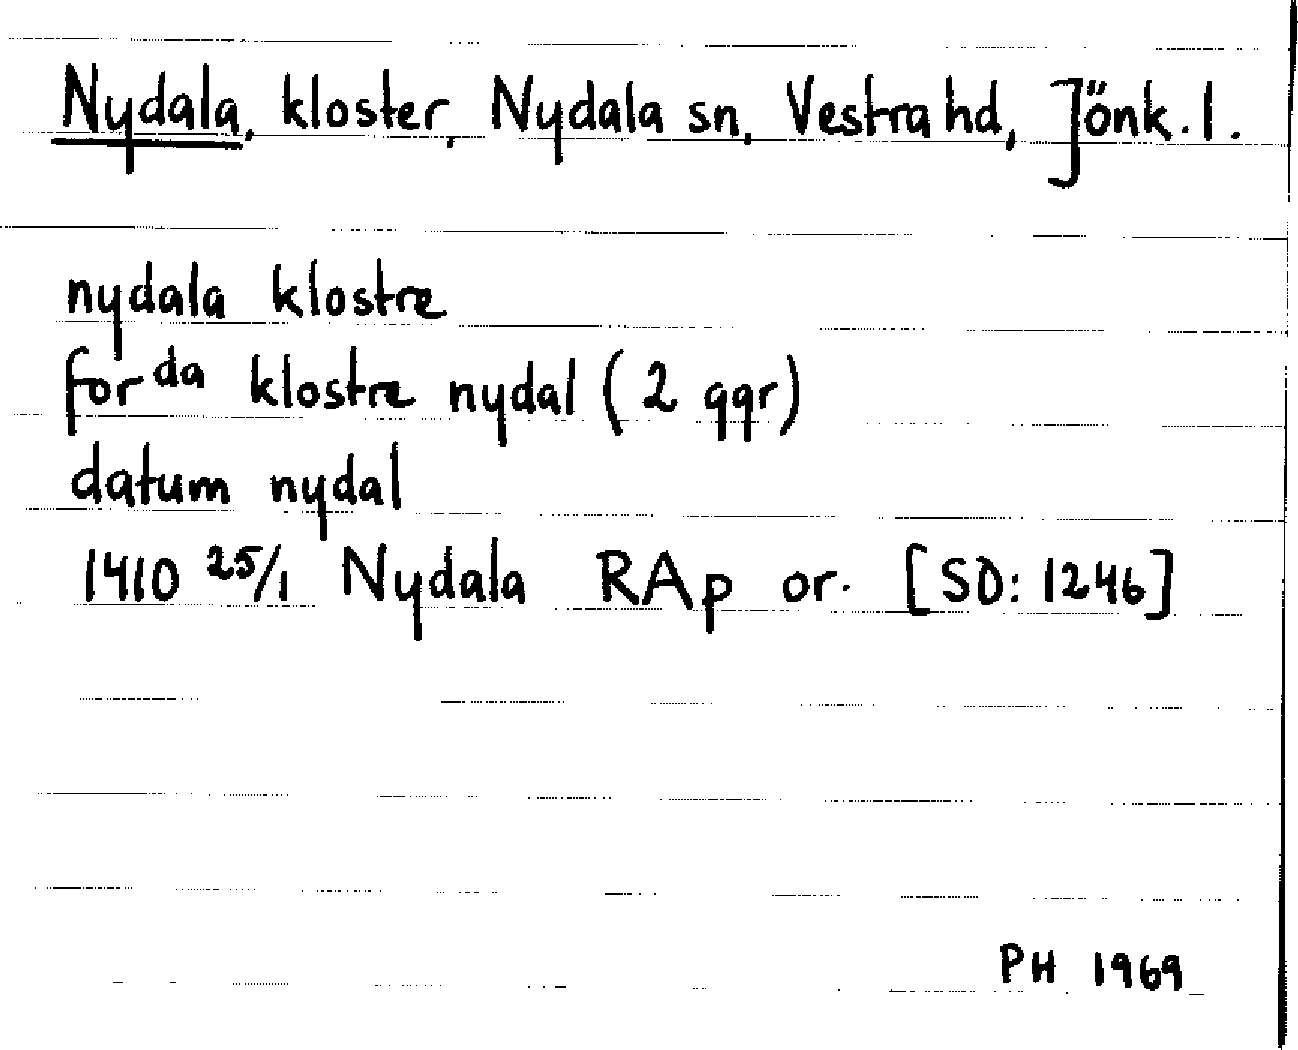 Nydala, kloster, Nydala sn, Vestra hd, Jönk. l.
nydala klostre
for da klostre nydal (2 ggr)
datum nydal
1410 25/1 Nydala RAp or. [SD: 1246]
PH 1969